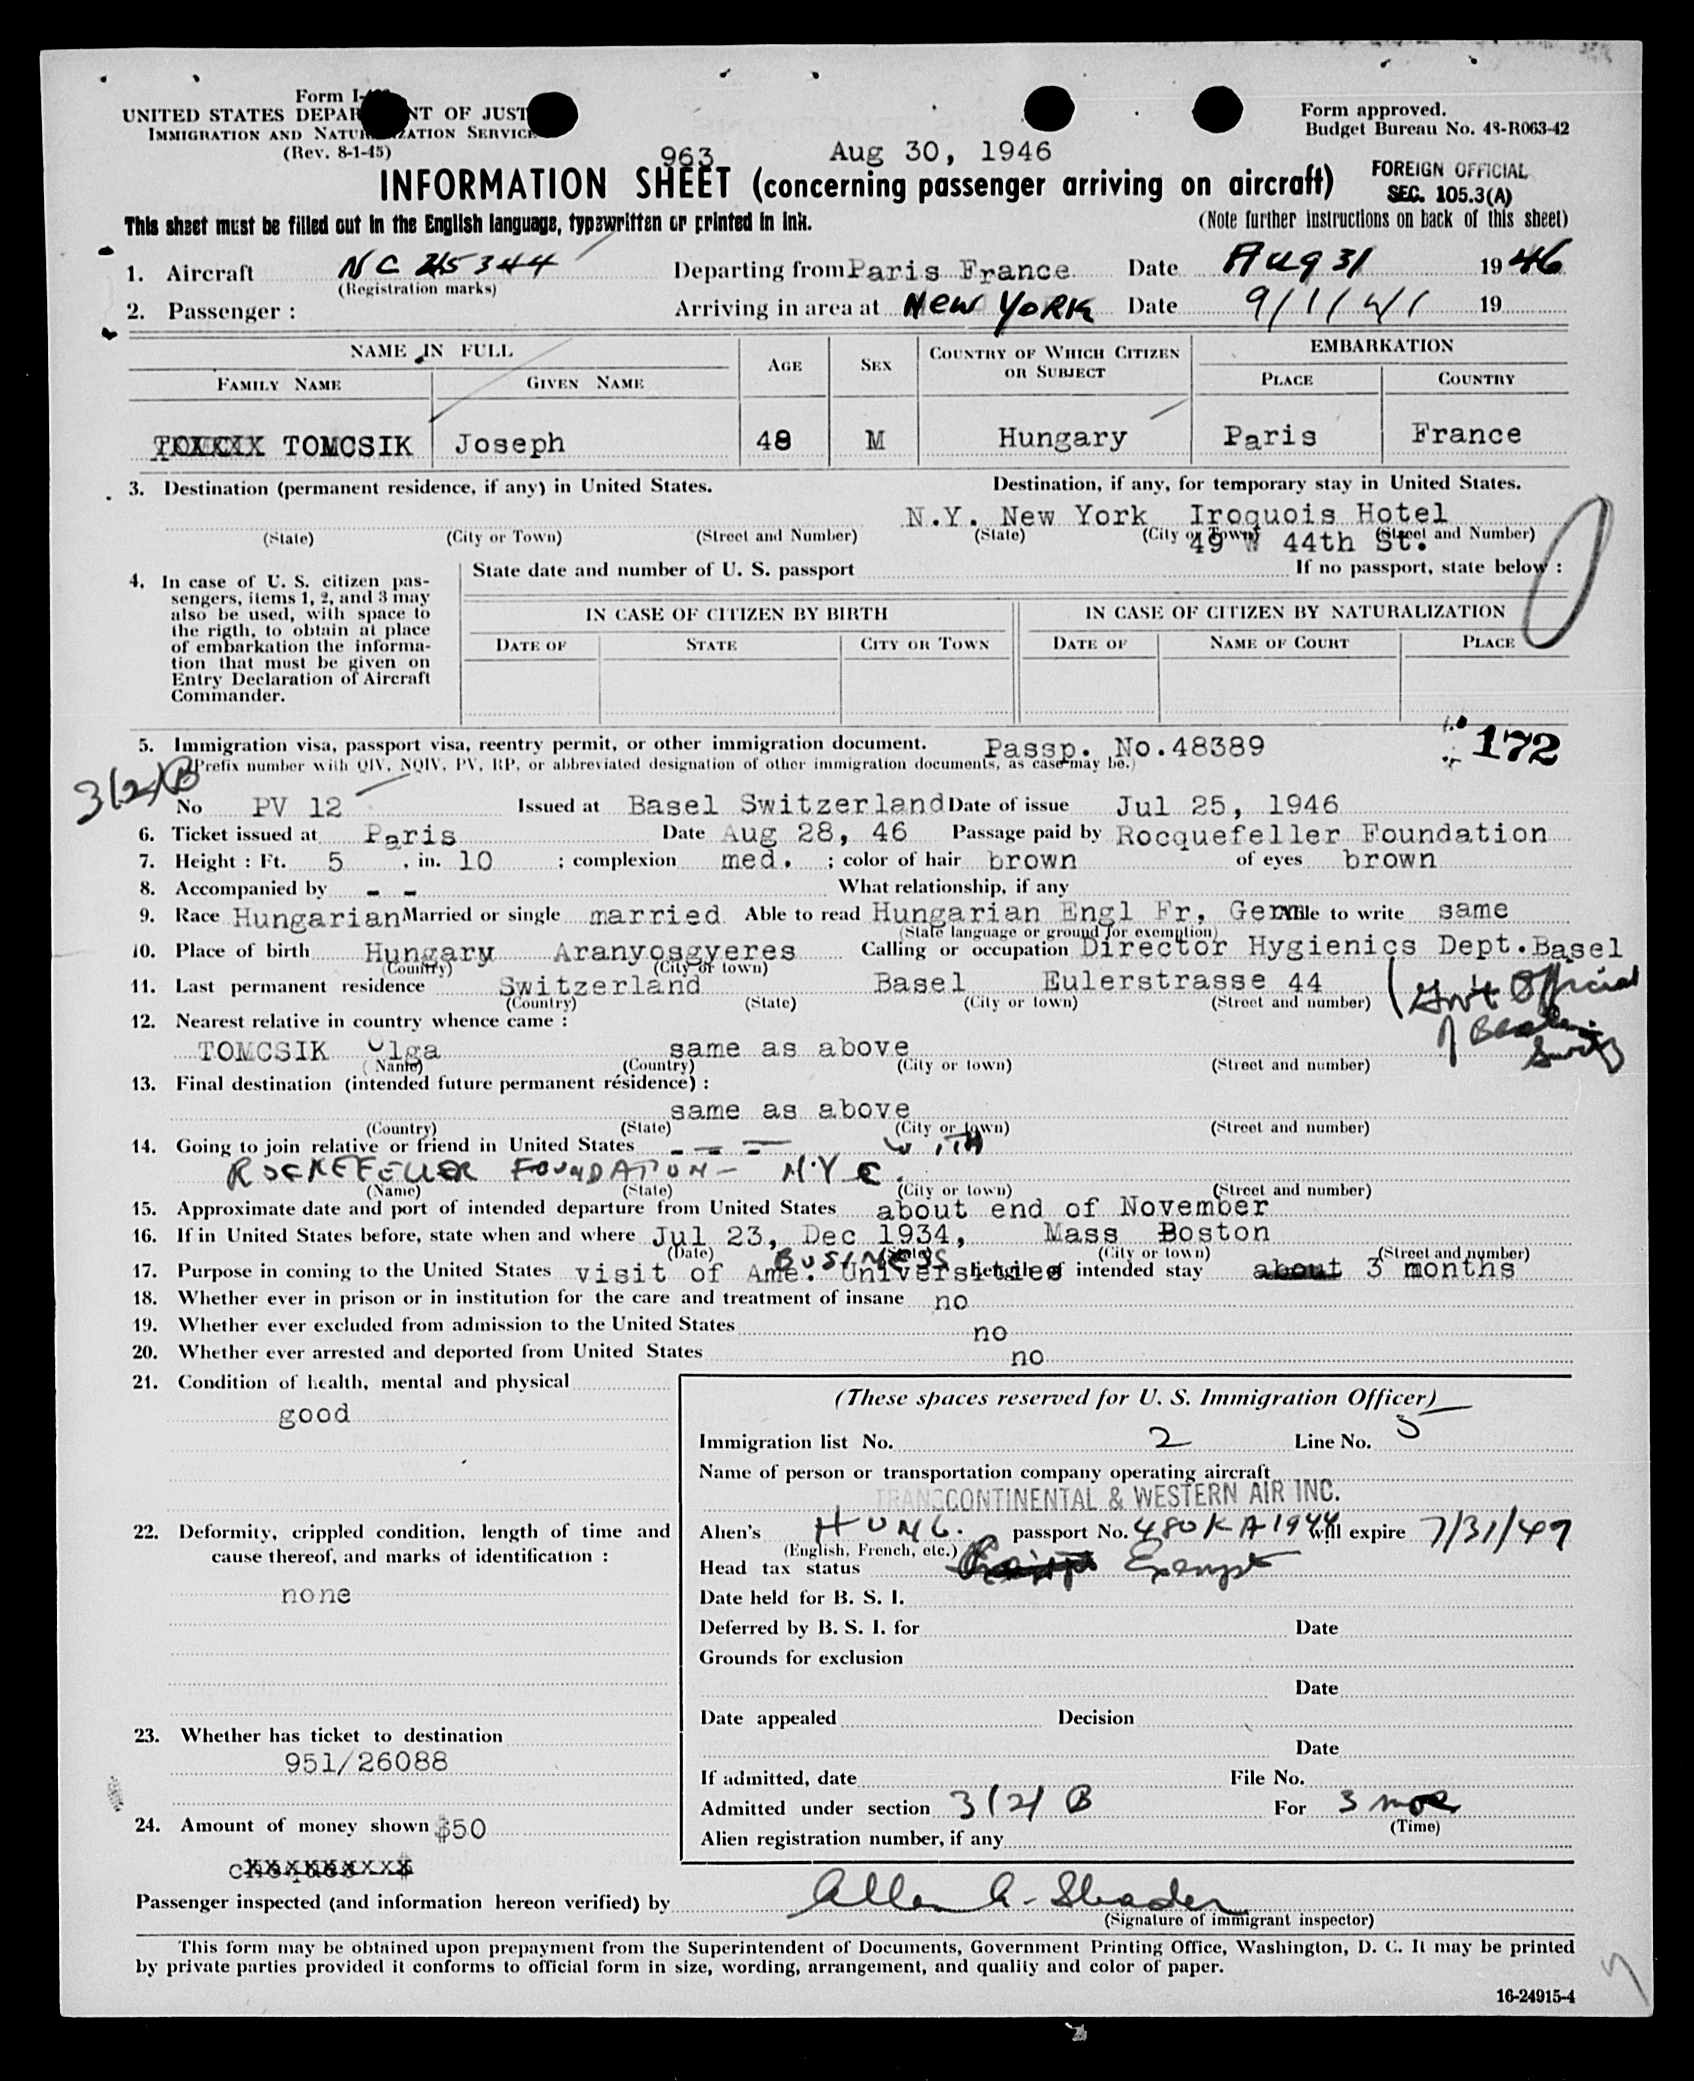 Form I-
UNITED STATES DEPAR NT OF JUST
IMMIGRATION AND NATUR ZATION SERVICE
(Rev. 8-1-45)
Form approved.
Budget Bureau No. 43-R063-42
963 Aug 30, 1946
FOREIGN OFFICIAL
SEC. 105.3(A)
INFORMATION SHEET (concerning passenger arriving on aircraft)
This sheet must be filled out in the English language, typewritten or printed in ink. (Note further instructions on back of this sheet)
1. Aircraft NC 45344 Departing from Paris France Date Aug 31 1946
(Registration marks)
2. Passenger : Arriving in area at NEW YORK Date 9/1/41 19
NAME IN FULL AGE SEX COUNTRY OF WHICH CITIZEN OR SUBJECT EMBARKATION
FAMILY NAME GIVEN NAME PLACE COUNTRY
TOMCSIK Joseph 48 M Hungary Paris France
3. Destination (permanent residence, if any) in United States. Destination, if any, for temporary stay in United States.
N.Y. New York Iroquois Hotel
(State) (City or Town) (Street and Number) (State) (City or Town) (Street and Number)
49 W 44th St.
4. In case of U. S. citizen pas- State date and number of U. S. passport If no passport, state below :
sengers, items 1, 2, and 3 may
also be used, with space to IN CASE OF CITIZEN BY BIRTH IN CASE OF CITIZEN BY NATURALIZATION
the rigth, to obtain at place
of embarkation the informa- DATE OF STATE CITY OR TOWN DATE OF NAME OF COURT PLACE
tion that must be given on
Entry Declaration of Aircraft
Commander.
5. Immigration visa, passport visa, reentry permit, or other immigration document. Passp. No.48389 172
(Prefix number with QIV, NQIV, PV, RP, or abbreviated designation of other immigration documents, as case may be.)
3(2)B
No PV 12 Issued at Basel Switzerland Date of issue Jul 25, 1946
6. Ticket issued at Paris Date Aug 28, 46 Passage paid by Rocquefeller Foundation
7. Height : Ft. 5 , in. 10 ; complexion med. ; color of hair brown of eyes brown
8. Accompanied by - - What relationship, if any
9. Race Hungarian Married or single married Able to read Hungarian Engl Fr, Germ Able to write same
(State language or ground for exemption)
10. Place of birth Hungary Aranyosgyeres Calling or occupation Director Hygienics Dept. Basel
(Country) (City or town)
11. Last permanent residence Switzerland Basel Eulerstrasse 44
(Country) (State) (City or town) (Street and number)
Govt Official
12. Nearest relative in country whence came :
TOMCSIK Olga same as above
(Name) (Country) (City or town) (Street and number)
13. Final destination (intended future permanent résidence) :
same as above
(Country) (State) (City or town) (Street and number)
14. Going to join relative or friend in United States - - - WITH
ROCKEFELLER FOUNDATION - N.Y.C.
(Name) (State) (City or town) (Street and number)
15. Approximate date and port of intended departure from United States about end of November
16. If in United States before, state when and where Jul 23, Dec 1934, Mass Boston
(Date) (State) (City or town) (Street and number)
BUSINESS
17. Purpose in coming to the United States visit of Ame. Universities Length of intended stay about 3 months
18. Whether ever in prison or in institution for the care and treatment of insane no
19. Whether ever excluded from admission to the United States no
20. Whether ever arrested and deported from United States no
21. Condition of health, mental and physical
good
(These spaces reserved for U. S. Immigration Officer)
Immigration list No. 2 Line No. 5
Name of person or transportation company operating aircraft
TRANSCONTINENTAL & WESTERN AIR INC.
22. Deformity, crippled condition, length of time and
cause thereof, and marks of identification :
none
Alien's HUNG. passport No. 480KA1944 will expire 7/31/47
(English, French, etc.)
Head tax status Exempt
Date held for B. S. I.
Deferred by B. S. I. for Date
Grounds for exclusion
Date
Date appealed Decision
Date
23. Whether has ticket to destination
951/26088
If admitted, date File No.
Admitted under section 3(2) B For 3 mos
(Time)
24. Amount of money shown $50
Alien registration number, if any
Passenger inspected (and information hereon verified) by Allen A. Shader
(Signature of immigrant inspector)
This form may be obtained upon prepayment from the Superintendent of Documents, Government Printing Office, Washington, D. C. It may be printed
by private parties provided it conforms to official form in size, wording, arrangement, and quality and color of paper.
16-24915-4